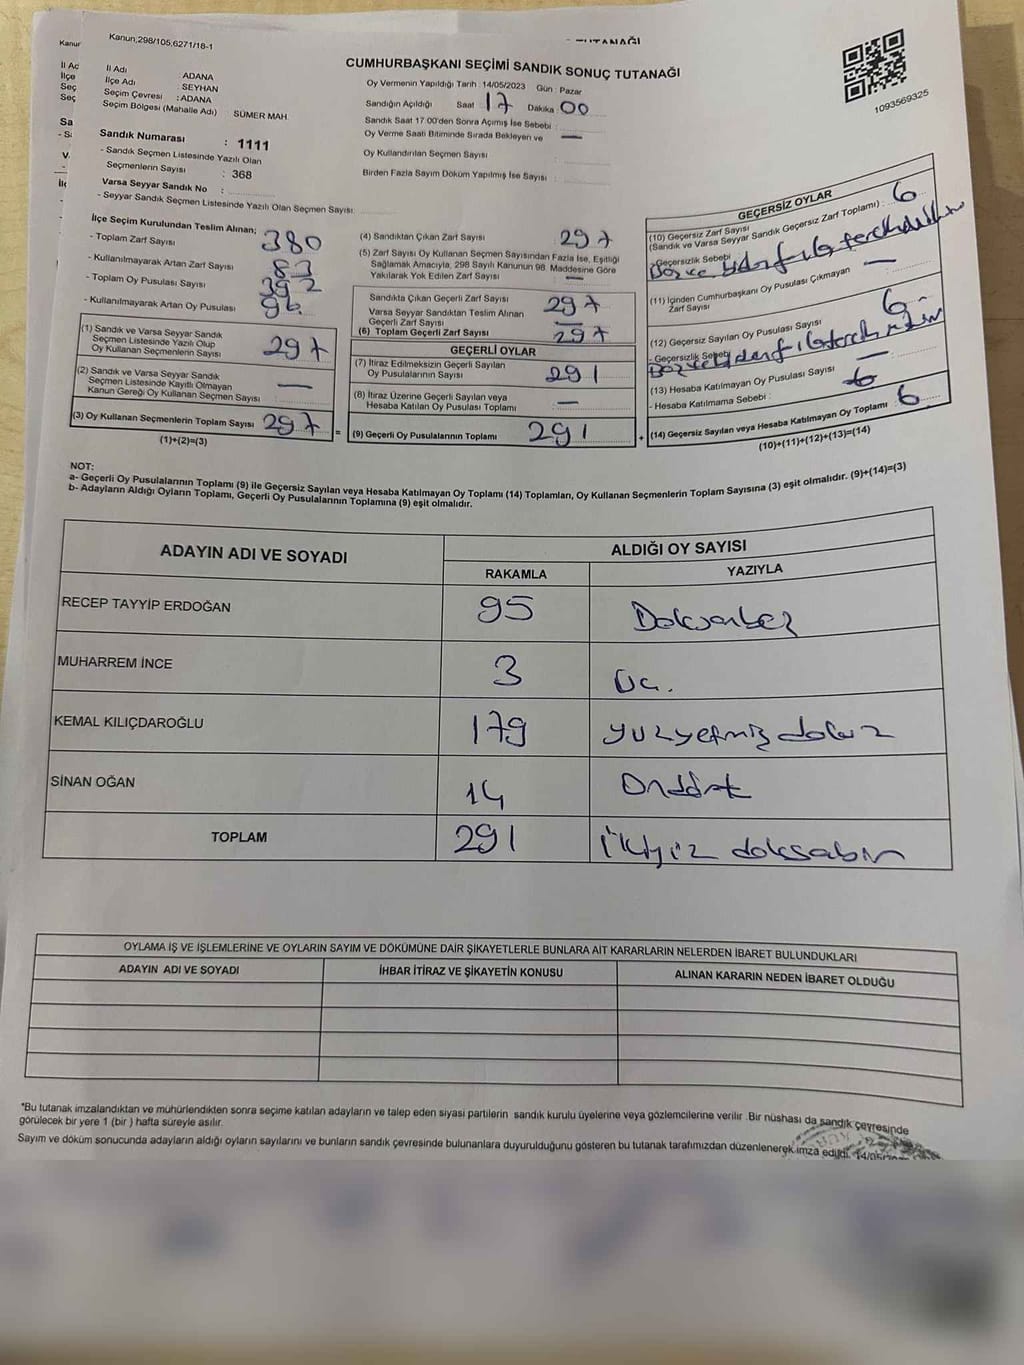 Kanun;298/105,6271/18-1
TUTANAĞI
CUMHURBAŞKANI SEÇİMİ SANDIK SONUÇ TUTANAĞI
Kanur
İl Ac
İlçe
Seç
Seç
İl Adı ADANA
İlçe Adı SEYHAN
Seçim Çevresi : ADANA
Seçim Bölgesi (Mahalle Adı) SÜMER MAH.
Oy Vermenin Yapıldığı Tarih : 14/05/2023 Gün : Pazar
Sandığın Açıldığı Saat 17 Dakika 00
Sandık Saat 17.00'den Sonra Açımış İse Sebebi :
Oy Verme Saati Bitiminde Sırada Bekleyen ve —
Oy Kullandırılan Seçmen Sayısı :
Birden Fazla Sayım Döküm Yapılmış İse Sayısı :
1093569325
Sandık Numarası : 1111
- Sandık Seçmen Listesinde Yazılı Olan
Seçmenlerin Sayısı : 368
Varsa Seyyar Sandık No :
- Seyyar Sandık Seçmen Listesinde Yazılı Olan Seçmen Sayısı:
İlçe Seçim Kurulundan Teslim Alınan;
- Toplam Zarf Sayısı 380
- Kullanılmayarak Artan Zarf Sayısı 83
- Toplam Oy Pusulası Sayısı 392
- Kullanılmayarak Artan Oy Pusulası 96
(1) Sandık ve Varsa Seyyar Sandık
Seçmen Listesinde Yazılı Olup
Oy Kullanan Seçmenlerin Sayısı 297
(2) Sandık ve Varsa Seyyar Sandık
Seçmen Listesinde Kayıtlı Olmayan
Kanun Gereği Oy Kullanan Seçmen Sayısı : —
(3) Oy Kullanan Seçmenlerin Toplam Sayısı 297
(1)+(2)=(3)
(4) Sandıktan Çıkan Zarf Sayısı 297
(5) Zarf Sayısı Oy Kullanan Seçmen Sayısından Fazla İse, Eşitliği
Sağlamak Amacıyla, 298 Sayılı Kanunun 98. Maddesine Göre
Yakılarak Yok Edilen Zarf Sayısı —
Sandıkta Çıkan Geçerli Zarf Sayısı 297
Varsa Seyyar Sandıktan Teslim Alınan
Geçerli Zarf Sayısı —
(6) Toplam Geçerli Zarf Sayısı 297
GEÇERLİ OYLAR
(7) İtiraz Edilmeksizin Geçerli Sayılan
Oy Pusulalarının Sayısı 291
(8) İtiraz Üzerine Geçerli Sayılan veya
Hesaba Katılan Oy Pusulası Toplamı —
=
(9) Geçerli Oy Pusulalarının Toplamı 291
+
GEÇERSİZ OYLAR
(10) Geçersiz Zarf Sayısı
(Sandık ve Varsa Seyyar Sandık Geçersiz Zarf Toplamı) : 6
- Geçersizlik Sebebi
(11) İçinden Cumhurbaşkanı Oy Pusulası Çıkmayan
Zarf Sayısı —
(12) Geçersiz Sayılan Oy Pusulası Sayısı 6
- Geçersizlik Sebebi
(13) Hesaba Katılmayan Oy Pusulası Sayısı —
- Hesaba Katılmama Sebebi :
(14) Geçersiz Sayılan veya Hesaba Katılmayan Oy Toplamı : 6
(10)+(11)+(12)+(13)=(14)
NOT:
a- Geçerli Oy Pusulalarının Toplamı (9) ile Geçersiz Sayılan veya Hesaba Katılmayan Oy Toplamı (14) Toplamları, Oy Kullanan Seçmenlerin Toplam Sayısına (3) eşit olmalıdır. (9)+(14)=(3)
b- Adayların Aldığı Oyların Toplamı, Geçerli Oy Pusulalarının Toplamına (9) eşit olmalıdır.
ADAYIN ADI VE SOYADI
ALDIĞI OY SAYISI
RAKAMLA YAZIYLA
RECEP TAYYİP ERDOĞAN 95 Doksanbeş
MUHARREM İNCE 3 Üç.
KEMAL KILIÇDAROĞLU 179 yüzyetmiş dokuz
SİNAN OĞAN 14 Ondört
TOPLAM 291 ikiyüz doksabir
OYLAMA İŞ VE İŞLEMLERİNE VE OYLARIN SAYIM VE DÖKÜMÜNE DAİR ŞİKAYETLERLE BUNLARA AİT KARARLARIN NELERDEN İBARET BULUNDUKLARI
ADAYIN ADI VE SOYADI İHBAR İTİRAZ VE ŞİKAYETİN KONUSU ALINAN KARARIN NEDEN İBARET OLDUĞU
*Bu tutanak imzalandıktan ve mühürlendikten sonra seçime katılan adayların ve talep eden siyasi partilerin sandık kurulu üyelerine veya gözlemcilerine verilir .Bir nüshası da sandık çevresinde
görülecek bir yere 1 (bir ) hafta süreyle asılır.
Sayım ve döküm sonucunda adayların aldığı oyların sayılarını ve bunların sandık çevresinde bulunanlara duyurulduğunu gösteren bu tutanak tarafımızdan düzenlenerek imza edildi.